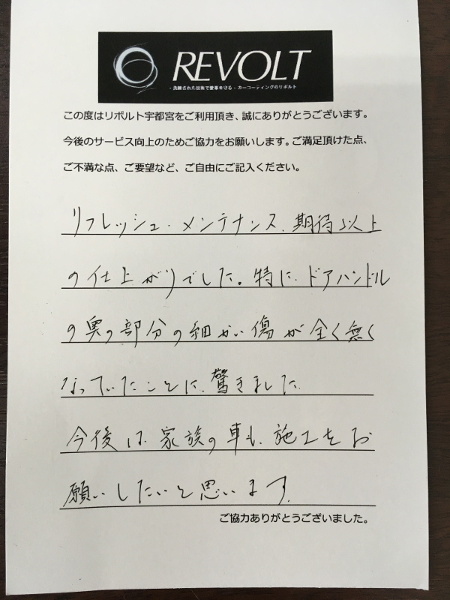 REVOLT
- 洗練された技術で愛車を守る - カーコーティングのリボルト
この度はリボルト宇都宮をご利用頂き、誠にありがとうございます。
今後のサービス向上のためご協力をお願いします。ご満足頂けた点、
ご不満な点、ご要望など、ご自由にご記入ください。
リフレッシュ・メンテナンス、期待以上
の仕上がりでした。特に、ドアハンドル
の奥の部分の細かい傷が全く無く
なっていたことに、驚きました。
今後は、家族の車も、施工をお
願いしたいと思います。
ご協力ありがとうございました。